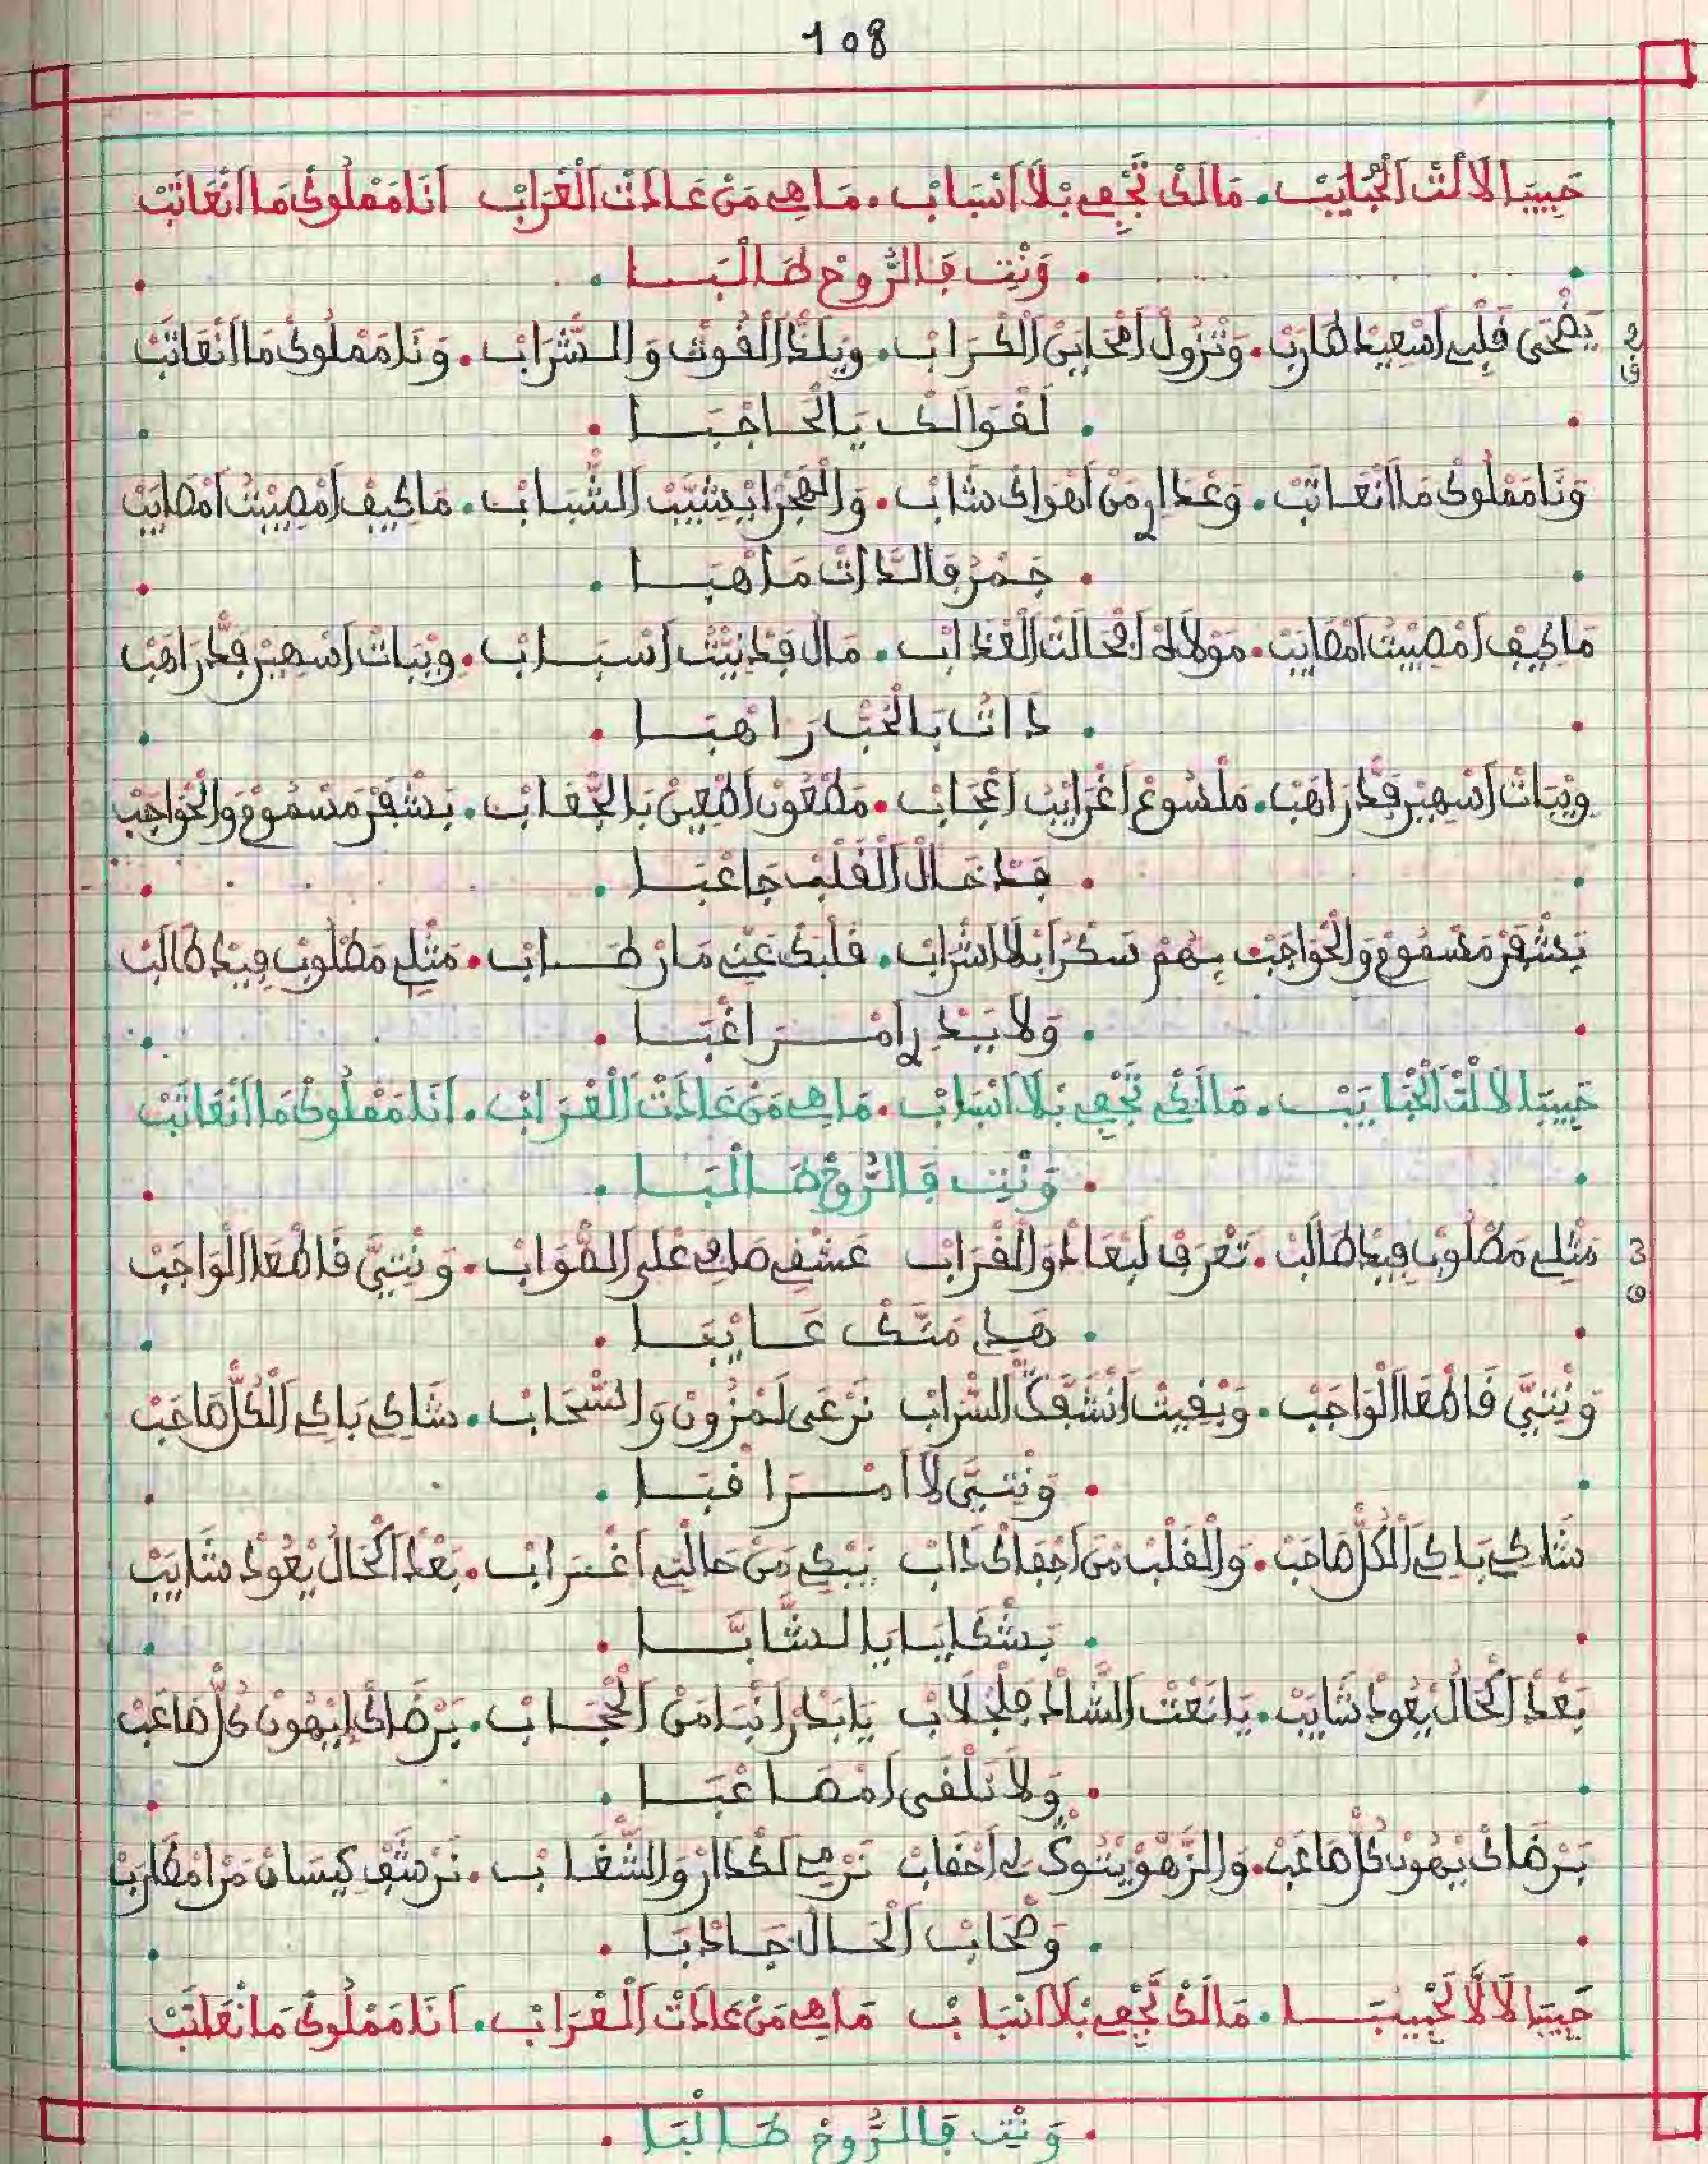 108
حَبِيبَا لَالَّتْ الْحْبَايَبْ. مَالَكْ تَجْفِي بْلَا اَسْبَابْ. مَا هِي مَنْ عَادَتْ الْعْرَابْ اَنَا مَمْلُوكْ مَا انْعَاتَبْ
. وَنْتِ فَالرُّوحْ طَـالْبَـا .
2 يَضْحَى قَلْبِي اسْعِيدْ طَارَبْ. وَتْزُولْ امْحَايَنْ الْكْرَابْ. وِيلَذْ الْقُوتْ وَالشّْرَابْ. وَنَا مَمْلُوكْ مَا انْعَاتَبْ
ق
. لَقْوَالَكْ يَالْحَـاجْبَـا .
وَنَا مَمْلُوكْ مَا انْعَـاتَبْ. وَعْدَارِي مَنْ اهْوَاكْ شَابْ. وَالْهَجْرَا يْشَيَّبْ الشّْبَـابْ. مَا كِيفْ امْصِيبْتْ امْصَايَبْ
. جَـمْرْ فَالذَّاتْ مَا هْبَـا .
مَا كِيفْ امْصِيبْتْ امْصَايَبْ. مَوْلَاهْ ابْحَالَتْ الْعْدَابْ. مَالْ فَدْنِيتْ اسْبَـابْ. وِيبَاتْ اسْهِيرْ قَدْ رَاهَبْ
. ذَاتْ بَالْحُبّْ رَاهْبَـا .
وِيبَاتْ اسْهِيرْ قَدْ رَاهَبْ. مَلْسُوعْ اغْرَايَبْ اعْجَابْ. مَطْعُونْ اطْعِينْ بَالْجْعَابْ. بَشْفَرْ مَسْمُومْ وَالْحْوَاجَبْ
. فَدْخَـالْ الْقَلْبْ جَاعْبَـا .
بَشْفَرْ مَسْمُومْ وَالْحْوَاجَبْ بِيهُمْ سَكْرَا بْلَا اشْرَابْ. قَلْبَكْ عَنِّي مَارْطَـابْ. مَثْلِي مَطْلُوبْ فِيدْ طَالَبْ
. وَلَا بَيْدِي امْـرَاغْبَـا .
حَبِيبَا لَالَّتْ الْحْبَايَبْ. مَالَكْ تَجْفِي بْلَا اسْبَابْ. مَا هِي مَنْ عَادَتْ الْعْرَابْ. اَنَا مَمْلُوكْ مَا انْعَاتَبْ
. وَنْتِ فَالرُّوحْ طَـالْبَـا .
3 مَثْلِي مَطْلُوبْ فِيدْ طَالَبْ. تَعْرَفْ لَبْعَادْ وَالْقْرَابْ عَشْقِي صَافِي عْلَى الصّْوَابْ. وَنْتِيَّ قَاطْعَا الْوَاجَبْ
و
. هَدِي مَنَّكْ عَـايْبَـا .
وَنْتِيَّ قَاطْعَا الْوَاجَبْ. وَبْقِيتْ انْشَقَّكْ السّْرَابْ نَرْعَى لَمْزُونْ وَالسّْحَابْ. شَاكِي بَاكِي الْكُلّْ صَاحَبْ
. وَنْتِيَّ لَا امْـرَاقْبَـا .
شَاكِي بَاكِي الْكُلّْ صَاحَبْ. وَالْقَلْبْ مَنْ اجْفَاكْ ذَابْ يَبْكِي مَنْ حَالْتِي اغْـرَابْ. بَعْدْ الْحَالْ يْعُودْ شَايَبْ
. بَشْكَايَا يَا الشَّابَّـا .
بَعْدْ الْحَالْ يْعُودْ شَايَبْ. يَا نَعْتْ الشَّادْ فَلْجْلَابْ يَا بَدْرْ انْبَا مَنْ الْحْجَـابْ. بَرْضَاكْ ايْهُونْ كُلّْ صَاعَبْ
. وَلَا نَلْقَى امْصَـاعْبَـا .
بَرْضَاكْ يْهُونْ كُلّْ صَاعَبْ. وَالزّْهُو يْتُوكْ لِي احْقَابْ نَرْمِي لَكْدَارْ وَالشّْغَـابْ. نَرْشَفْ كِيسَانْ مَنْ امْطَارَبْ
. وَصْحَابْ الْحَـالْ جَـادْبَـا .
حَبِيبَا لَالَّا لَحْبِيبَـا. مَالَكْ تَجْفِي بْلَا اسْبَابْ مَا هِي مَنْ عَادَتْ الْعْرَابْ. اَنَا مَمْلُوكْ مَا نْعَاتَبْ
. وَنْتِ فَالرُّوحْ طَـالْبَـا .